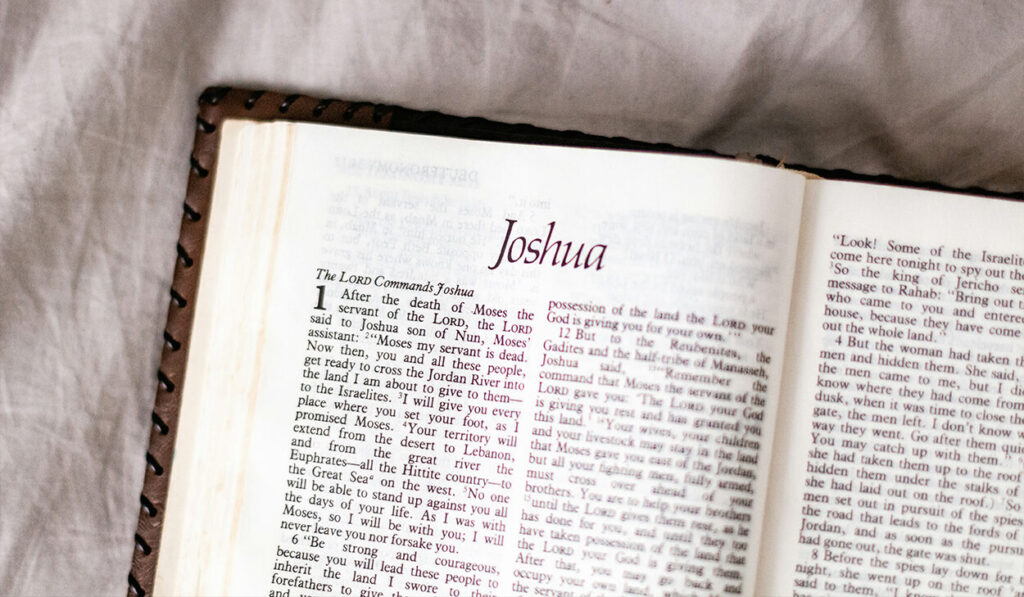 Joshua
The LORD Commands Joshua
1 After the death of Moses the
servant of the LORD, the LORD
said to Joshua son of Nun, Moses'
assistant: 2“Moses my servant is dead.
Now then, you and all these people,
get ready to cross the Jordan River into
the land I am about to give to them—
to the Israelites. 3I will give you every
place where you set your foot, as I
promised Moses. 4Your territory will
extend from the desert to Lebanon,
and from the great river the
Euphrates—all the Hittite country—to
the Great Seaa on the west. 5No one
will be able to stand up against you all
the days of your life. As I was with
Moses, so I will be with you; I will
never leave you nor forsake you.
6 “Be strong and courageous,
because you will lead these people to
inherit the land I swore to their
forefathers to give
possession of the land the LORD your
God is giving you for your own.’ ”
12 But to the Reubenites, the
Gadites and the half-tribe of Manasseh,
Joshua said, 13“Remember the
command that Moses the servant of the
LORD gave you: ‘The LORD your God
is giving you rest and has granted you
this land.’ 14Your wives, your children
and your livestock may stay in the land
that Moses gave you east of the Jordan,
but all your fighting men, fully armed,
must cross over ahead of your
brothers. You are to help your brothers
15until the LORD gives them rest, as he
has done for you, and until they too
have taken possession of the land that
the LORD your God is giving them.
After that, you may go back and
occupy your own land, which Moses
the servant of the LORD
“Look! Some of the Israelit
come here tonight to spy out th
3So the king of Jericho se
message to Rahab: “Bring out t
who came to you and entere
house, because they have come
out the whole land.”
4 But the woman had taken t
men and hidden them. She said,
the men came to me, but I di
know where they had come from
dusk, when it was time to close th
gate, the men left. I don't know w
way they went. Go after them quic
You may catch up with them.”
she had taken them up to the roof
hidden them under the stalks of
she had laid out on the roof.) So
men set out in pursuit of the spies
the road that leads to the fords of
Jordan, and as soon as the pursu
had gone out, the gate was shut.
8 Before the spies lay down for t
night, she went up on the roof
said to them, “I